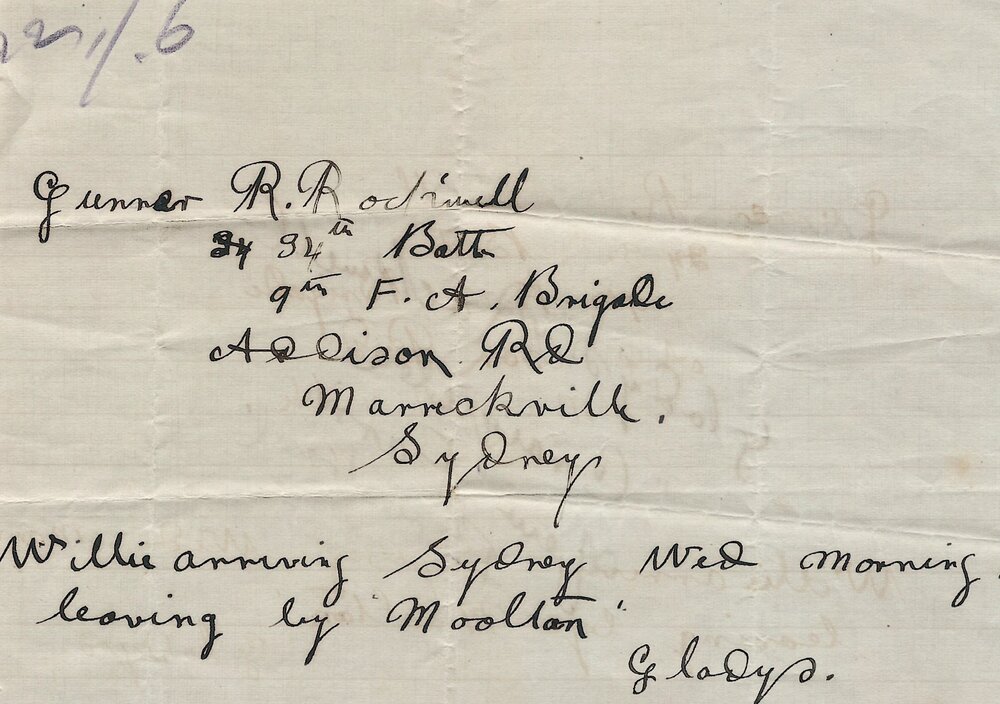 Gunner R. Rockwell
34 34th Batt
9th F. A. Brigade
Addison Rd
Marreckville.
Sydney
Willie arriving Sydney Wed morning.
leaving by "Mooltan"
Gladys.